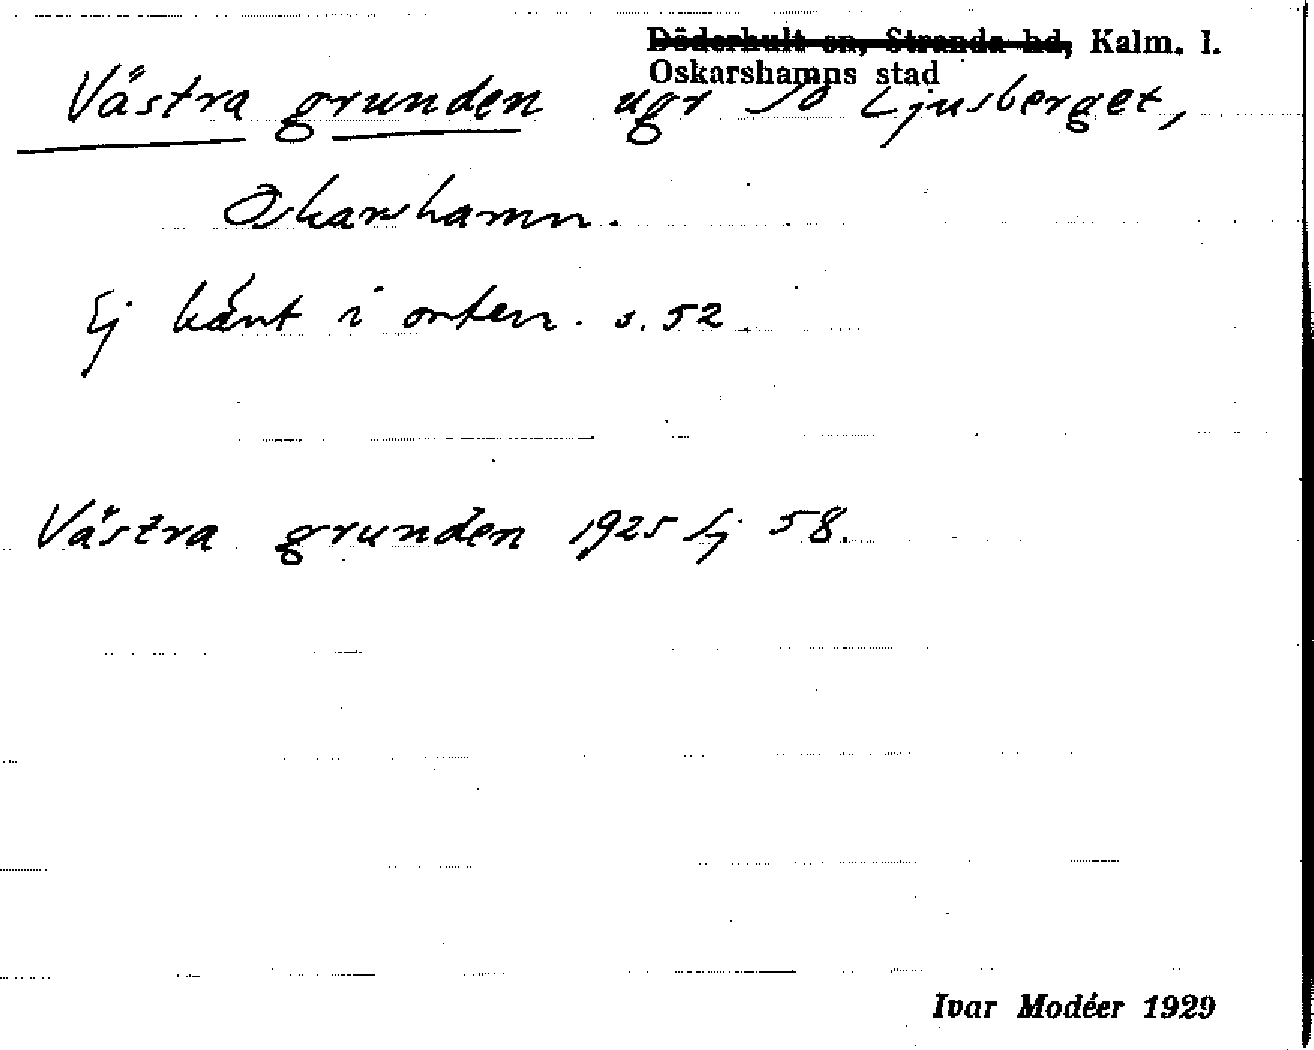 Döderhult sn, Stranda hd, Kalm. l.
Oskarshamns stad
Västra grunden ugr SO Ljusberget,
Oskarshamn.
Ej känt i orten. s. 52
Västra grunden 1925 Ej 58.
Ivar Modéer 1929